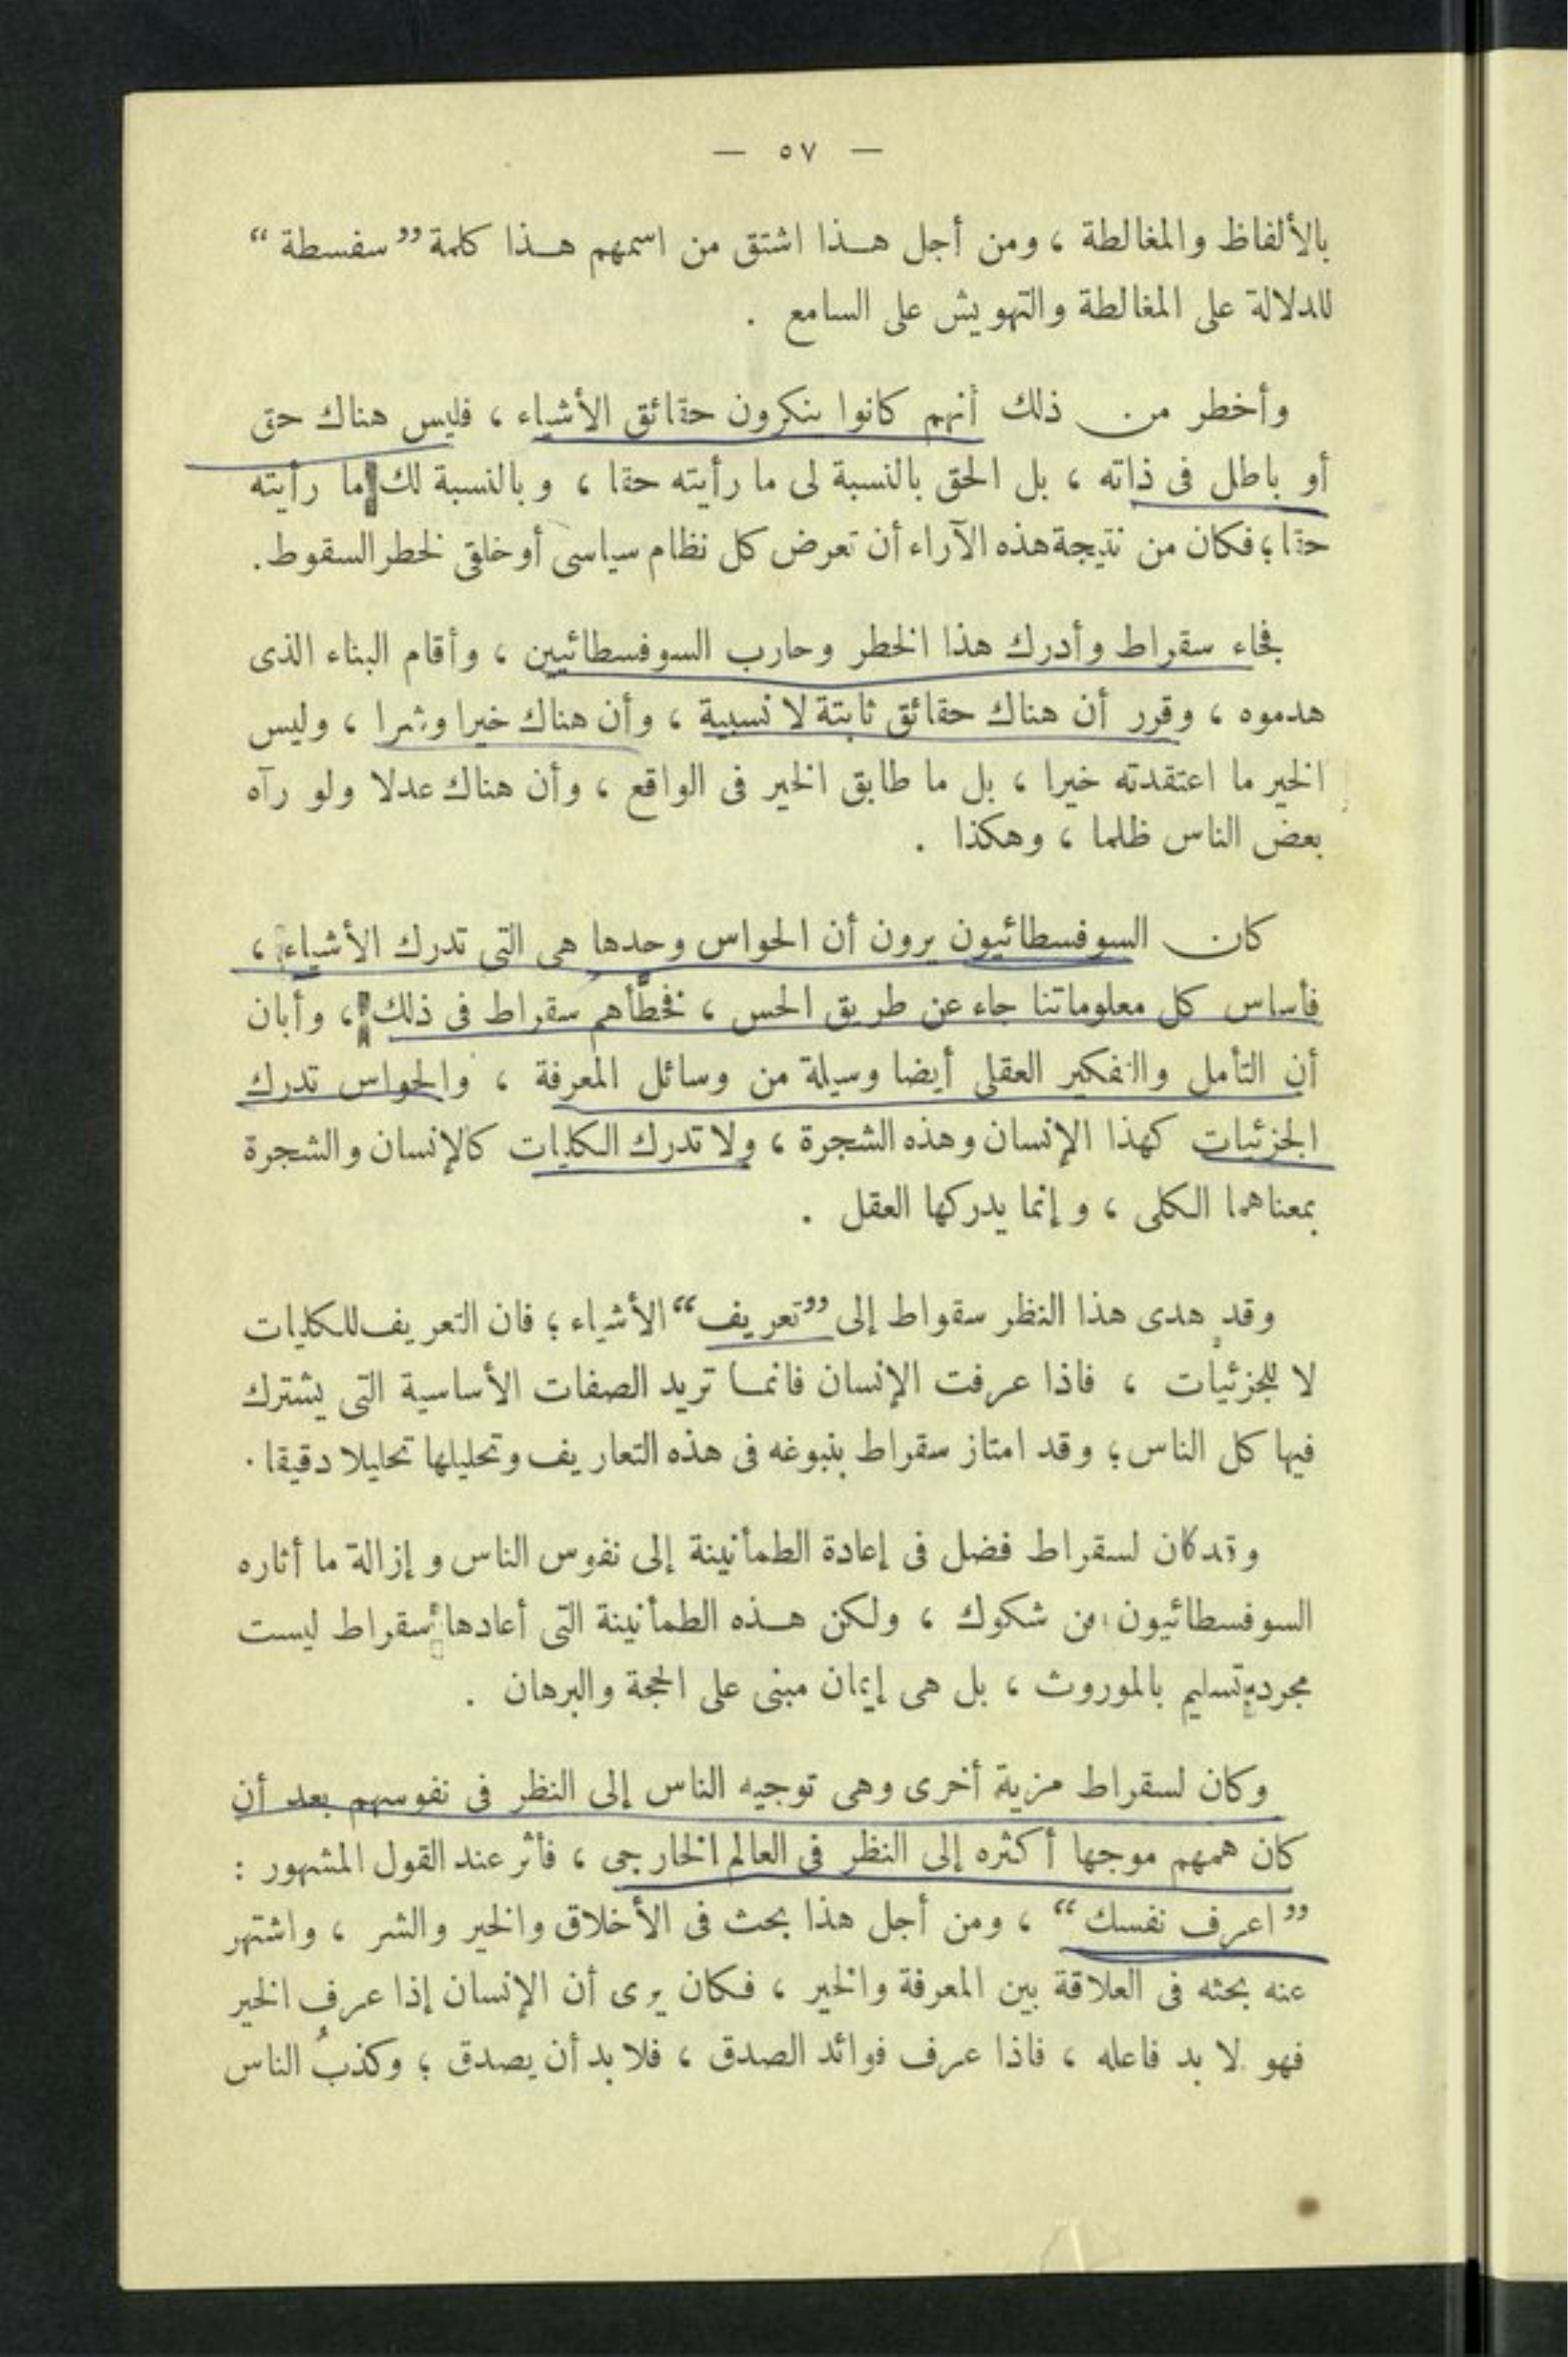 — ٥٧ —
بالألفاظ والمغالطة ، ومن أجل هـذا اشتق من اسمهم هـذا كلمة ”سفسطة“
للدلالة على المغالطة والتهويش على السامع .
وأخطر من ذلك أنهم كانوا ينكرون حقائق الأشياء ، فليس هناك حق
أو باطل فى ذاته ، بل الحق بالنسبة لى ما رأيته حقا ، وبالنسبة لك ما رأيته
حقا ؛ فكان من نتيجة هذه الآراء أن تعرض كل نظام سياسى أو خلقى لخطر السقوط.
فجاء سقراط وأدرك هذا الخطر وحارب السوفسطائيين ، وأقام البناء الذى
هدموه ، وقرر أن هناك حقائق ثابتة لا نسبية ، وأن هناك خيرا وشرا ، وليس
الخير ما اعتقدته خيرا ، بل ما طابق الخير فى الواقع ، وأن هناك عدلا ولو رآه
بعض الناس ظلما ، وهكذا .
كان السوفسطائيون يرون أن الحواس وحدها هى التى تدرك الأشياء ،
فأساس كل معلوماتنا جاء عن طريق الحس ، فخطَّأهم سقراط فى ذلك ، وأبان
أن التأمل والتفكير العقلى أيضا وسيلة من وسائل المعرفة ، والحواس تدرك
الجزئيات كهذا الإنسان وهذه الشجرة ، ولا تدرك الكليات كالإنسان والشجرة
بمعناهما الكلى ، وإنما يدركها العقل .
وقد هدى هذا النظر سقواط إلى ”تعريف“ الأشياء ؛ فان التعريف للكليات
لا للجزئيات ، فاذا عرفت الإنسان فانمـا تريد الصفات الأساسية التى يشترك
فيها كل الناس ؛ وقد امتاز سقراط بنبوغه فى هذه التعاريف وتحليلها تحليلا دقيقا .
وقد كان لسقراط فضل فى إعادة الطمأنينة إلى نفوس الناس وإزالة ما أثاره
السوفسطائيون من شكوك ، ولكن هـذه الطمأنينة التى أعادها سقراط ليست
مجرد تسليم بالموروث ، بل هى إيمان مبنى على الحجة والبرهان .
وكان لسقراط مزية أخرى وهى توجيه الناس إلى النظر فى نفوسهم بعد أن
كان همهم موجها أكثره إلى النظر فى العالم الخارجى ، فأثر عند القول المشهور :
”اعرف نفسك“ ، ومن أجل هذا بحث فى الأخلاق والخير والشر ، واشتهر
عنه بحثه فى العلاقة بين المعرفة والخير ، فكان يرى أن الإنسان إذا عرف الخير
فهو لا بد فاعله ، فاذا عرف فوائد الصدق ، فلا بد أن يصدق ؛ وكذبُ الناس